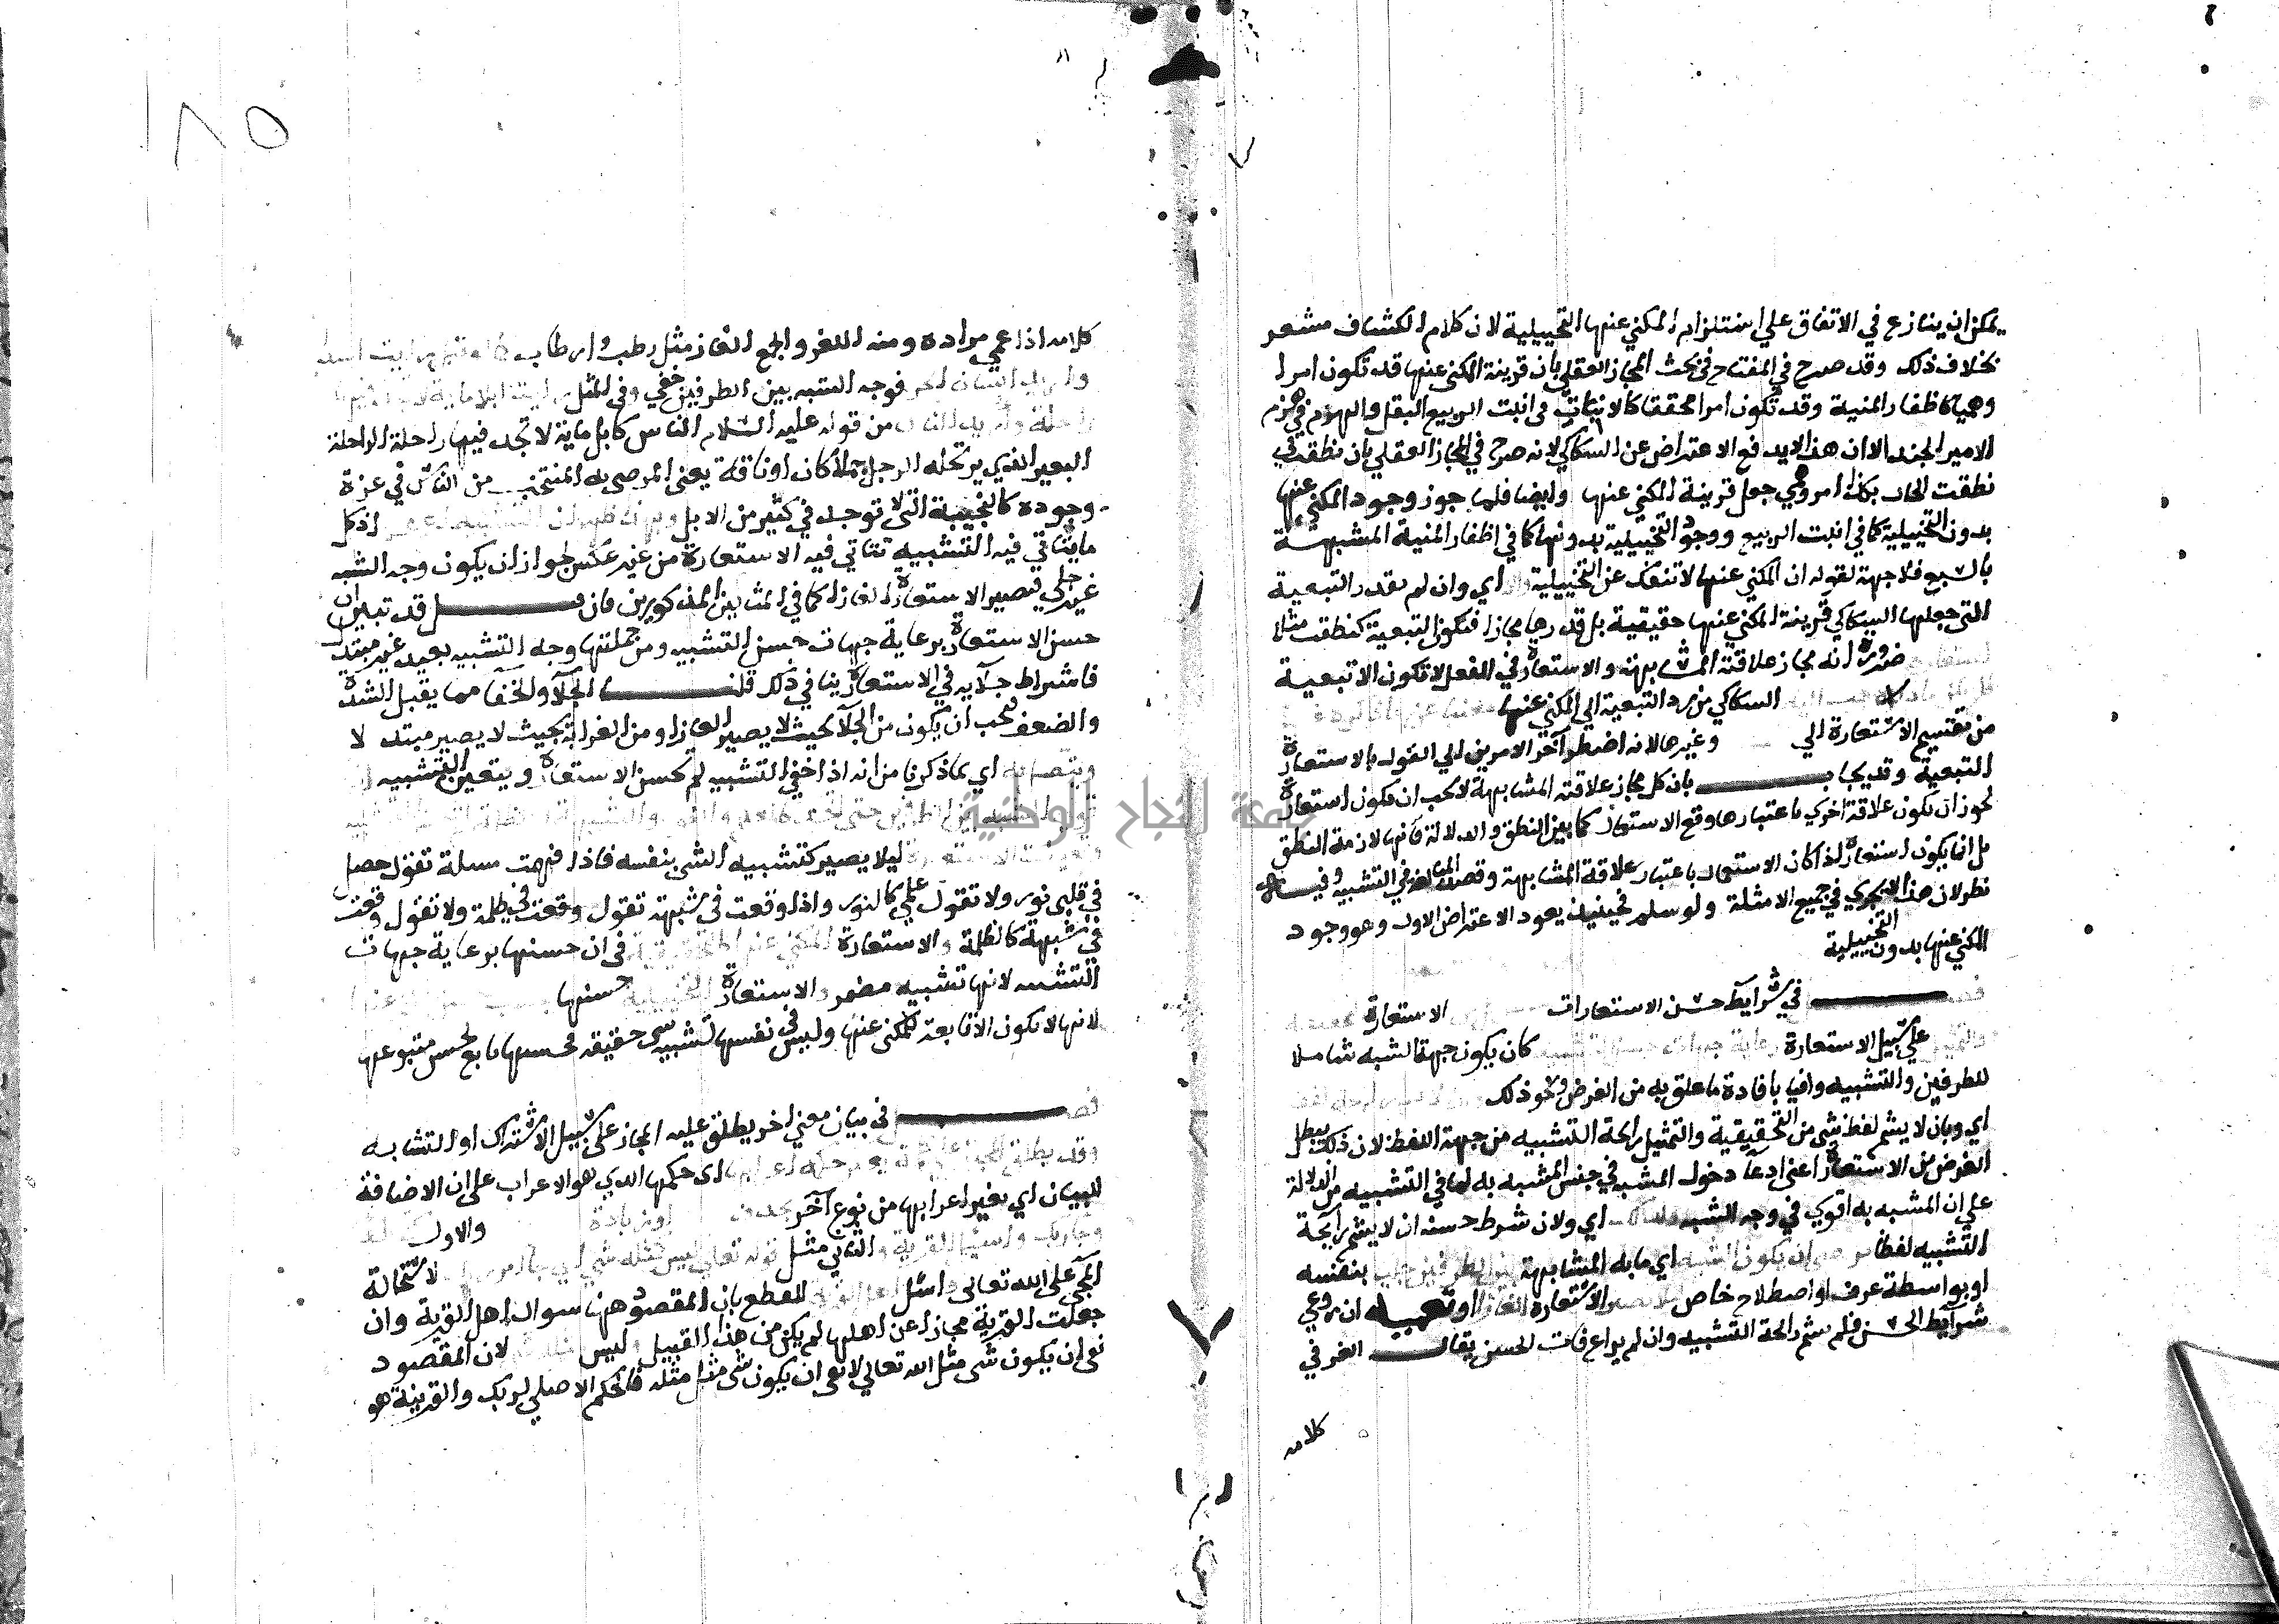 يمكن ان ينازع في الاتفاق علي استلزام المكني عنها التخييلية لان كلام الكشاف مشعر
بخلاف ذلك وقد صرح في المفتاح في بحث المجاز العقلي بان قرينة المكني عنها قد تكون امرا
وهميا كاظفار المنية وقد تكون امرا محققا كالانبات في انبت الربيع البقل والهزم في هزم
الامير الجند الا ان هذا لا يدفع الاعتراض عن السكاكي لانه صرح في المجاز العقلي بان نطقت في
نطقت الحال بكذا امر وهمي جعل قرينة المكني عنها وايضا فلما جوز وجود المكني عنها
بدون التخييلية كما في انبت الربيع ووجود التخييلية بدونها كما في اظفار المنية المشبهة
بالسبع فلا جهة لقوله ان المكني عنها لا تنفك عن التخييلية اي وان لم يقدر التبعية
التي جعلها السكاكي قرينة المكني عنها حقيقية بل قدرها مجازا فتكون التبعية كنطقت مثلا
ضرورة انه مجاز علاقته المشابهة والاستعارة في الفعل لا تكون الا تبعية
السكاكي من رد التبعية الي المكني عنها
من تقسيم الاستعارة الي وغيرها لانه اضطر آخر الامرين الي القول بالاستعارة
التبعية وقد يجاب بان كل مجاز علاقته المشابهة لا يجب ان يكون استعارة
لجواز ان يكون علاقة اخري باعتبارها وقع الاستعمال كما بين النطق والدلالة فانها لازمة النطق
بل انما يكون استعارة اذا كان الاستعمال باعتبار علاقة المشابهة وقصد المبالغة في التشبيه وفيه
نظر لان هذا لا يجري في جميع الامثلة ولو سلم فحينئذ يعود الاعتراض الاول وهو وجود
المكني عنها بدون التخييلية
في شرايط حسن الاستعارات الاستعارة
علي سبيل الاستعارة كان يكون جهة الشبه شاملا
للطرفين والتشبيه وافيا بافادة ما علق به من الغرض ونحو ذلك
اي وبان لا يشم لفظ شي من التحقيقية والتمثيل رائحة التشبيه من جهة اللفظ لان ذلك يبطل
الغرض من الاستعارة اعني ادعا دخول المشبه في جنس المشبه به لما في التشبيه من الدلالة
علي ان المشبه به اقوي في وجه الشبه اي ولان شرط حسنه ان لا يشم رايحة
التشبيه لفظا ان يكون الشبه اي ما به المشابهة بين الطرفين بنفسه
او بواسطة عرف او اصطلاح خاص الاستعارة الغازا او تعمية ان روعي
شرايط الحسن فلم يشم رائحة التشبيه وان لم يراع فات الحسن يقال الغز في
كلامه
١٨٥
كلامه اذا عمي مراده ومنه اللغز والجمع الغاز مثل رطب وارطاب
فوجه الشبه بين الطرفين خفي وفي
من قوله عليه السلام الناس كابل ماية لا تجد فيها راحلة الراحلة
البعير الذي يرتحله الرجل جملا كان او ناقة يعني المرضي به المنتخب من الناس في عزة
وجوده كالنجيبة التي لا توجد في كثير من الابل اذ كل
ما يتاتي فيه التشبيه تتاتي فيه الاستعارة من غير عكس لجواز ان يكون وجه الشبه
غير جلي فتصير الاستعارة الغازا كما في المثالين المذكورين فان قيل قد تبين ان
حسن الاستعارة برعاية جهات حسن التشبيه ومن جملتها وجه التشبيه بعيد غير مبتذل
فاشتراط جلايه في الاستعارة ينافي ذلك قلنا الجلا والخفا مما يقبل الشدة
والضعف فيجب ان يكون من الجلا بحيث لا يصير الغازا ومن الغرابة بحيث لا يصير مبتذلا
ويتصل به اي بما ذكرنا من انه اذا خفي التشبيه لم تحسن الاستعارة ويتعين التشبيه
ليلا يصير كتشبيه الشي بنفسه فاذا فهمت مسلة تقول حصل
في قلبي نور ولا تقول علم كالنور واذا وقعت في شبهة تقول وقعت في ظلمة ولا تقول وقعت
في شبهة كالظلمة والاستعارة في ان حسنها برعاية جهات
التشبيه لانها تشبيه مضمر والاستعارة حسنها
لانها لا تكون الا تابعة للمكني عنها وليس في نفسها تشبيه حقيقة فحسنها تابع لحسن متبوعها
في بيان معني اخر يطلق عليه المجاز علي سبيل الاشتراك او التشابه
اي حكمها الذي هو الاعراب علي ان الاضافة
للبيان اي بغير اعرابها من نوع آخر او بزيادة والاول
والثاني مثل قوله تعالي ليس كمثله شي لاستحالة
المجي علي الله تعالي واسئل للقطع بان المقصود هنا سوال اهل القرية وان
جعلت القرية مجازا عن اهلها لم يكن من هذا القبيل وليس لان المقصود
نفي ان يكون شي مثل الله تعالي لا نفي ان يكون شي مثل مثله فالحكم الاصلي لربك والقرينة هو
جامعة النجاح الوطنية